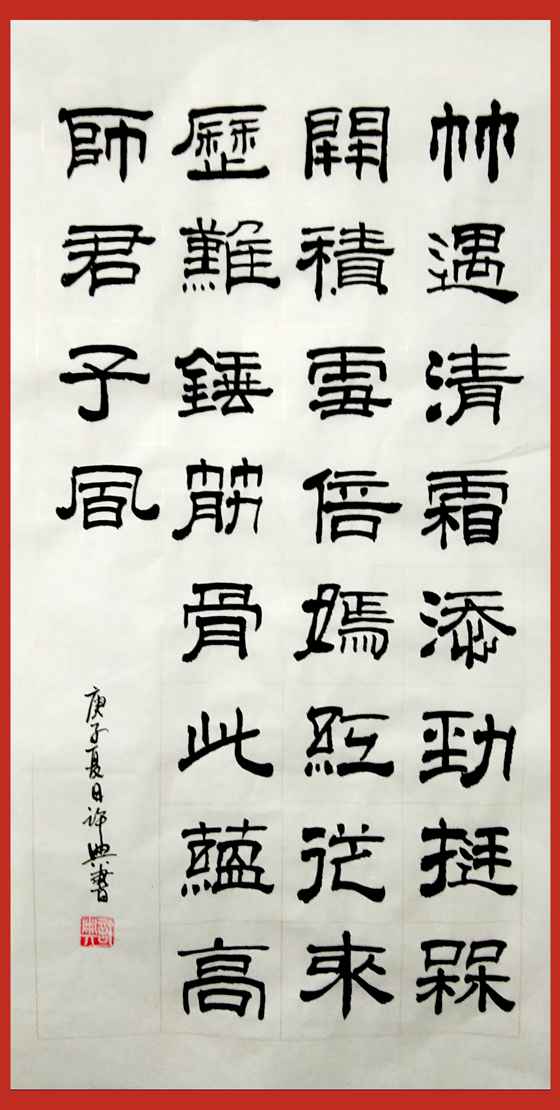 竹遇清霜添勁挺槑
開積雪倍嫣紅從來
歷難錘筋骨此藴高
師君子風
庚子夏日許典書